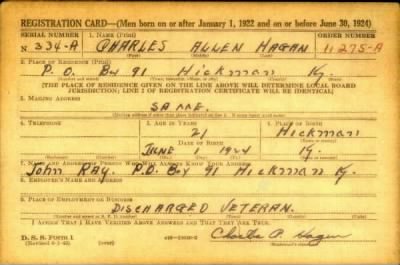 REGISTRATION CARD—(Men born on or after January 1, 1922 and on or before June 30, 1924)
SERIAL NUMBER 1. NAME (Print) ORDER NUMBER
N 334-A CHARLES ALLEN HAGAN 11275-A
(First) (Middle) (Last)
2. PLACE OF RESIDENCE (Print)
P. O. Box 91 Hickman Ky.
(Number and street) (Town, township, village, or city) (County) (State)
[THE PLACE OF RESIDENCE GIVEN ON THE LINE ABOVE WILL DETERMINE LOCAL BOARD
JURISDICTION; LINE 2 OF REGISTRATION CERTIFICATE WILL BE IDENTICAL]
3. MAILING ADDRESS
SAME.
4. TELEPHONE 5. AGE IN YEARS 6. PLACE OF BIRTH
21 Hickman
DATE OF BIRTH
JUNE 1 1924 Ky.
(Exchange) (Number) (Mo.) (Day) (Yr.) (State or country)
7. NAME AND ADDRESS OF PERSON WHO WILL ALWAYS KNOW YOUR ADDRESS
John Ray. P.O. Box 91 Hickman Ky.
8. EMPLOYER'S NAME AND ADDRESS
9. PLACE OF EMPLOYMENT OR BUSINESS
DISCHARGED VETERAN.
(Number and street or R. F. D. number) (Town) (County) (State)
I AFFIRM THAT I HAVE VERIFIED ABOVE ANSWERS AND THAT THEY ARE TRUE.
D. S. S. FORM 1 Charles A. Hagan
(Registrant's signature)